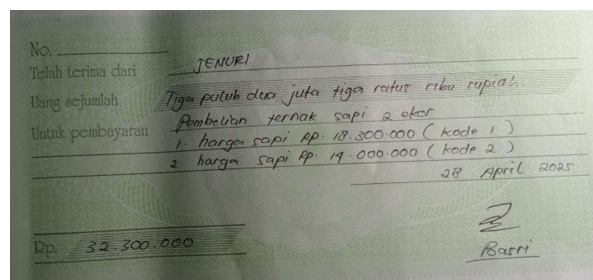 No.
Telah terima dari JENURI
Uang sejumlah Tiga puluh dua juta tiga ratus ribu rupiah.
Untuk pembayaran Pembelian ternak sapi 2 ekor
1. harga sapi Rp. 18.300.000 ( kode 1 )
2 harga sapi Rp. 14.000.000 ( kode 2 )
28 April 2025
Rp. 32.300.000
Basri